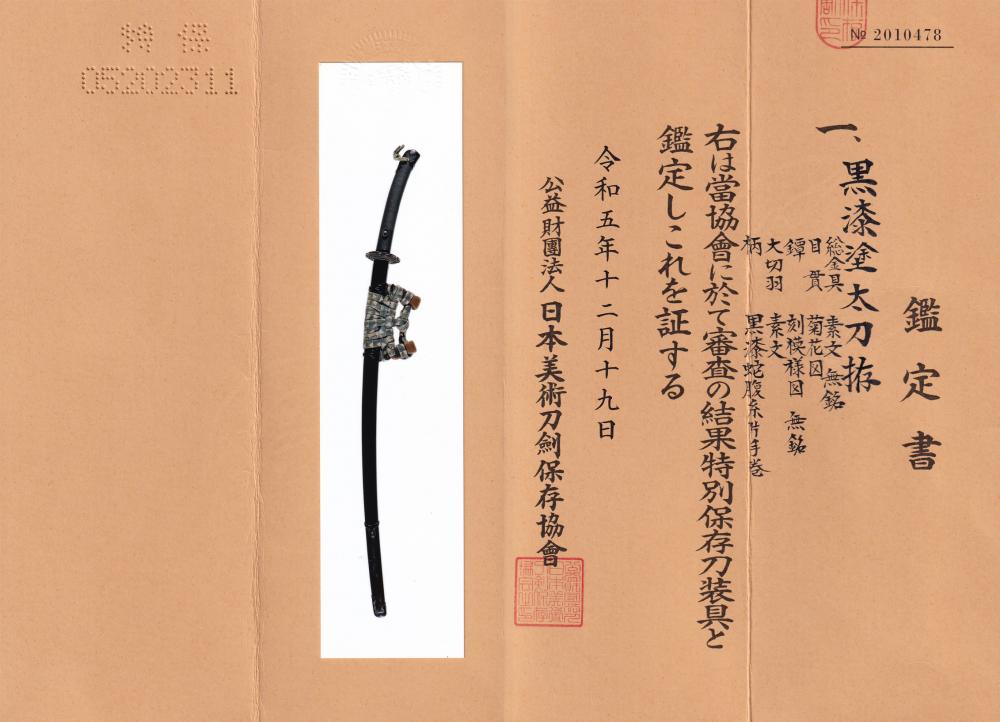 № 2010478
鑑定書
一、黒漆塗太刀拵
総金具 素文 無銘
目貫 菊花図
鐔 刻模様図 無銘
大切羽 素文
柄 黒漆蛇腹糸片手巻
右は當協會に於て審査の結果特別保存刀装具と
鑑定しこれを証する
令和五年十二月十九日
公益財團法人 日本美術刀劍保存協會
05202311